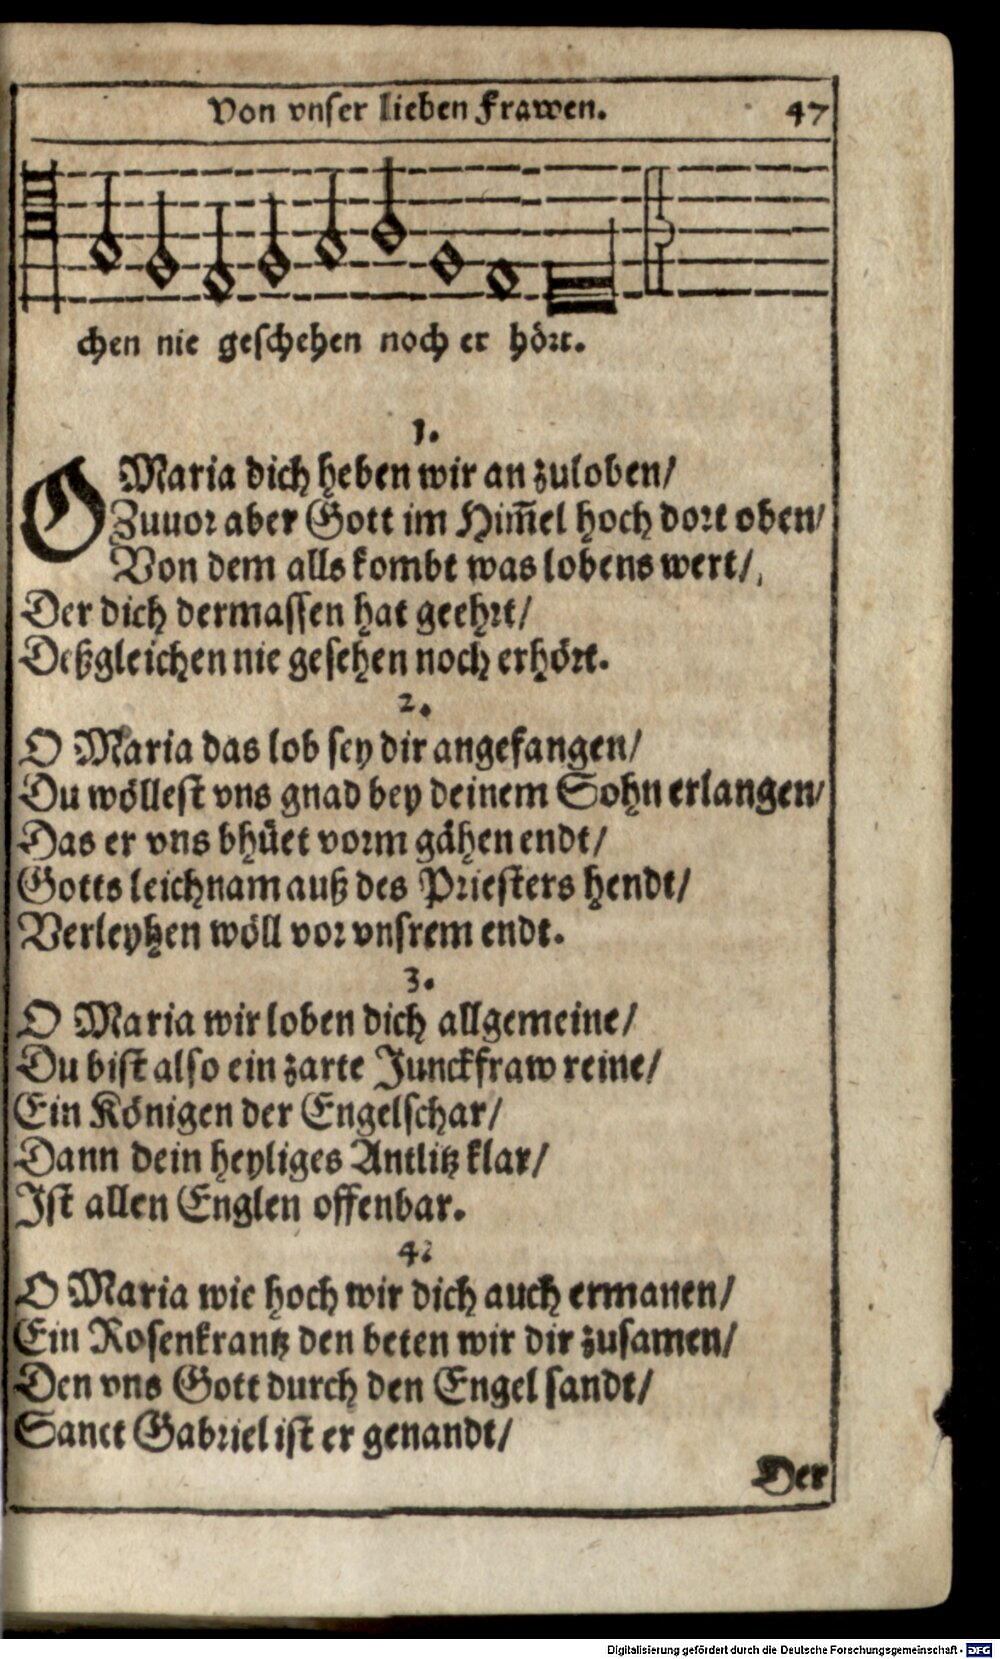 Von vnser lieben Frawen. 47
chen nie geschehen noch er hört.
1.
O Maria dich heben wir an zuloben/
Zuuor aber Gott im Him̃el hoch dort oben/
Von dem alls kombt was lobens wert/
Der dich dermassen hat geehrt/
Deßgleichen nie gesehen noch erhört.
2.
O Maria das lob sey dir angefangen/
Du wöllest vns gnad bey deinem Sohn erlangen/
Das er vns bhüet vorm gähen endt/
Gotts leichnam auß des Priesters hendt/
Verleyhen wöll vor vnsrem endt.
3.
O Maria wir loben dich allgemeine/
Du bist also ein zarte Junckfraw reine/
Ein Königen der Engelschar/
Dann dein heyliges Antlitz klar/
Ist allen Englen offenbar.
4.
O Maria wie hoch wir dich auch ermanen/
Ein Rosenkrantz den beten wir dir zusamen/
Den vns Gott durch den Engel sandt/
Sanct Gabriel ist er genandt/
Der
Digitalisierung gefördert durch die Deutsche Forschungsgemeinschaft - DFG